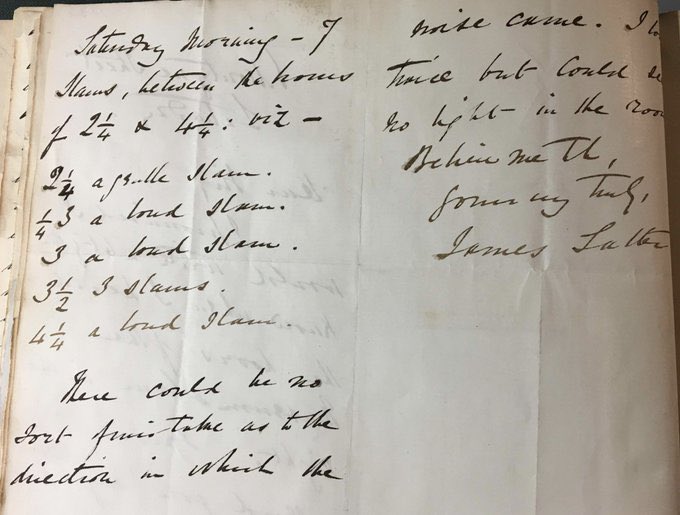 Saturday Morning – 7
slams, between the hours
of 2¼ & 4¼: viz –
2¼ a gentle slam.
¼ 3 a loud slam.
3 a loud slam.
3½ 3 slams.
4¼ a loud slam.
There could be no
sort of mistake as to the
direction in which the
noise came. I
twice but could
no light in the
Believe me
Yours very truly,
James